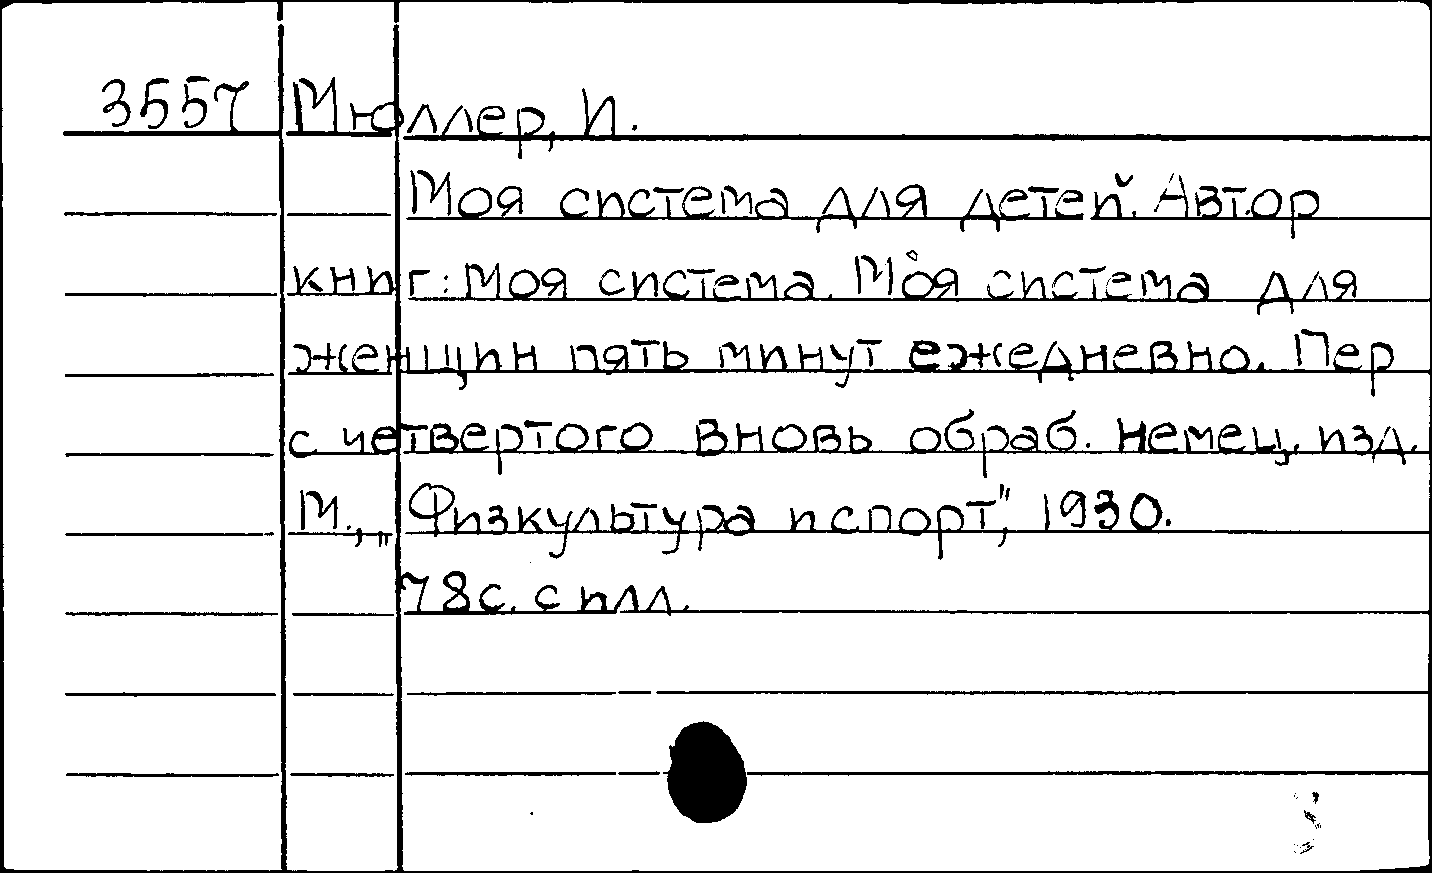 3557 Мюллер, И.
Моя система для детей. Автор
книг: Моя система. Моя система для
женщин пять минут ежедневно. Пер
с четвертого вновь обраб. немец. изд.
М., „Физкультура и спорт", 1930.
78с. с илл.